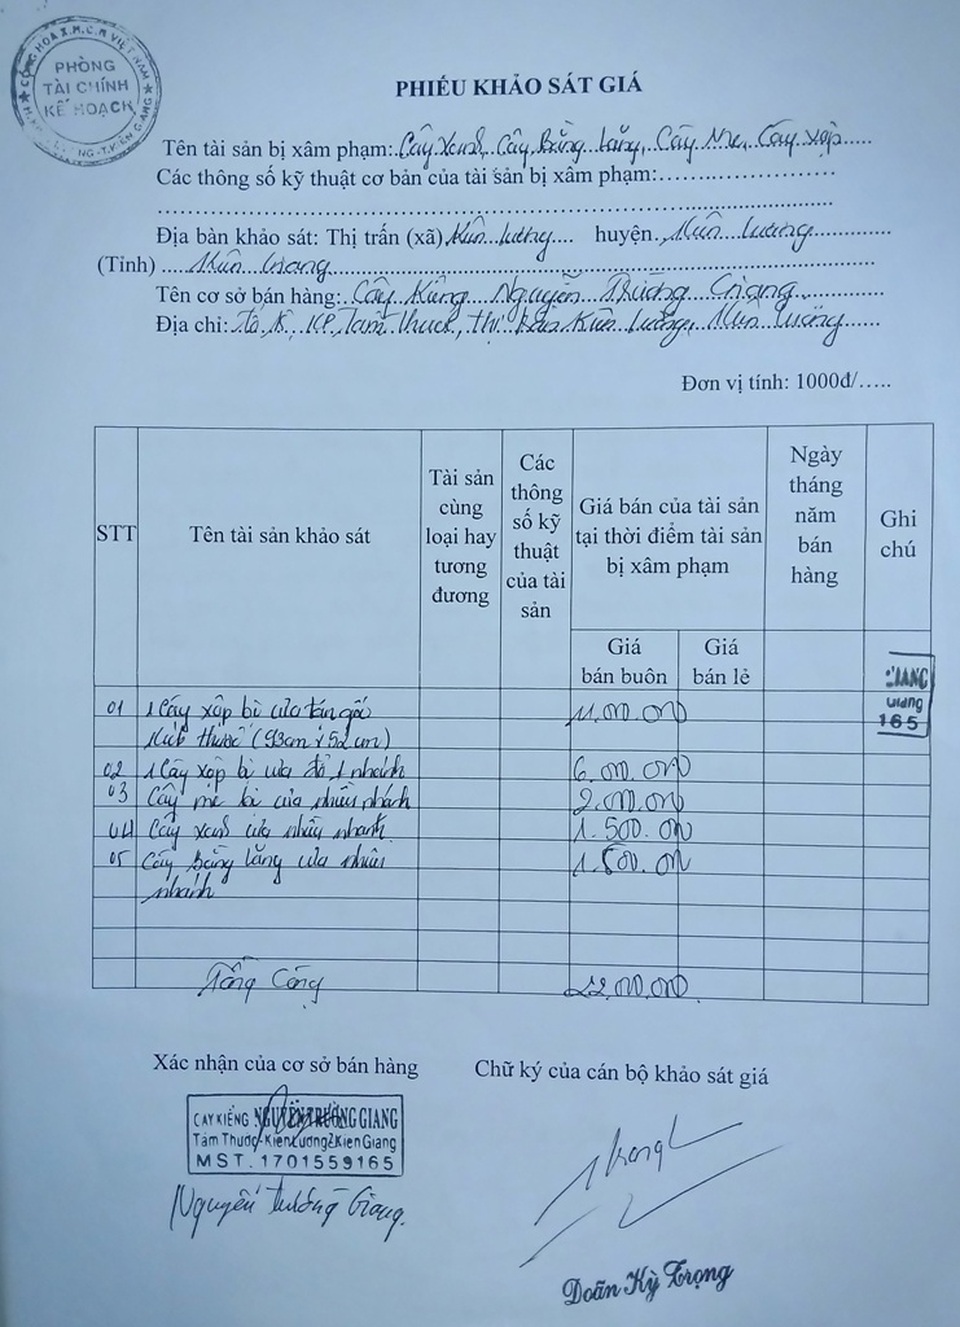 CỘNG HÒA X.H.C.N VIỆT NAM
PHÒNG
TÀI CHÍNH
KẾ HOẠCH
PHIẾU KHẢO SÁT GIÁ
Tên tài sản bị xâm phạm: Cây Xanh, Cây Bằng lăng, Cây Me, Cây xộp
Các thông số kỹ thuật cơ bản của tài sản bị xâm phạm:
Địa bàn khảo sát: Thị trấn (xã) Kiên Lương huyện Kiên Lương
(Tỉnh) Kiên Giang
Tên cơ sở bán hàng: Cây Kiểng Nguyễn Trường Giang
Địa chỉ: Tổ KP Tám Thước, Thị trấn Kiên Lương, Kiên Lương
Đơn vị tính: 1000đ/…..
STT
Tên tài sản khảo sát
Tài sản cùng loại hay tương đương
Các thông số kỹ thuật của tài sản
Giá bán của tài sản tại thời điểm tài sản bị xâm phạm
Ngày tháng năm bán hàng
Ghi chú
Giá bán buôn
Giá bán lẻ
GIANG
Giang
165
01 1 Cây xộp bị cưa tán gốc 11.000.000
Kích thước (93cm x 52cm)
02 1 Cây xộp bị cưa đổ 1 nhánh 6.000.000
03 Cây me bị cưa nhiều nhánh 2.000.000
04 Cây xanh cưa nhiều nhánh 1.500.000
05 Cây Bằng lăng cưa nhiều 1.500.000
nhánh
Tổng Cộng 22.000.000
Xác nhận của cơ sở bán hàng
Chữ ký của cán bộ khảo sát giá
CAY KIỂNG NGUYỄN TRƯỜNG GIANG
Tám Thước-Kiên Lương-Kiên Giang
MST. 1701559165
Trọng
Nguyễn Trường Giang.
Doãn Kỳ Trọng